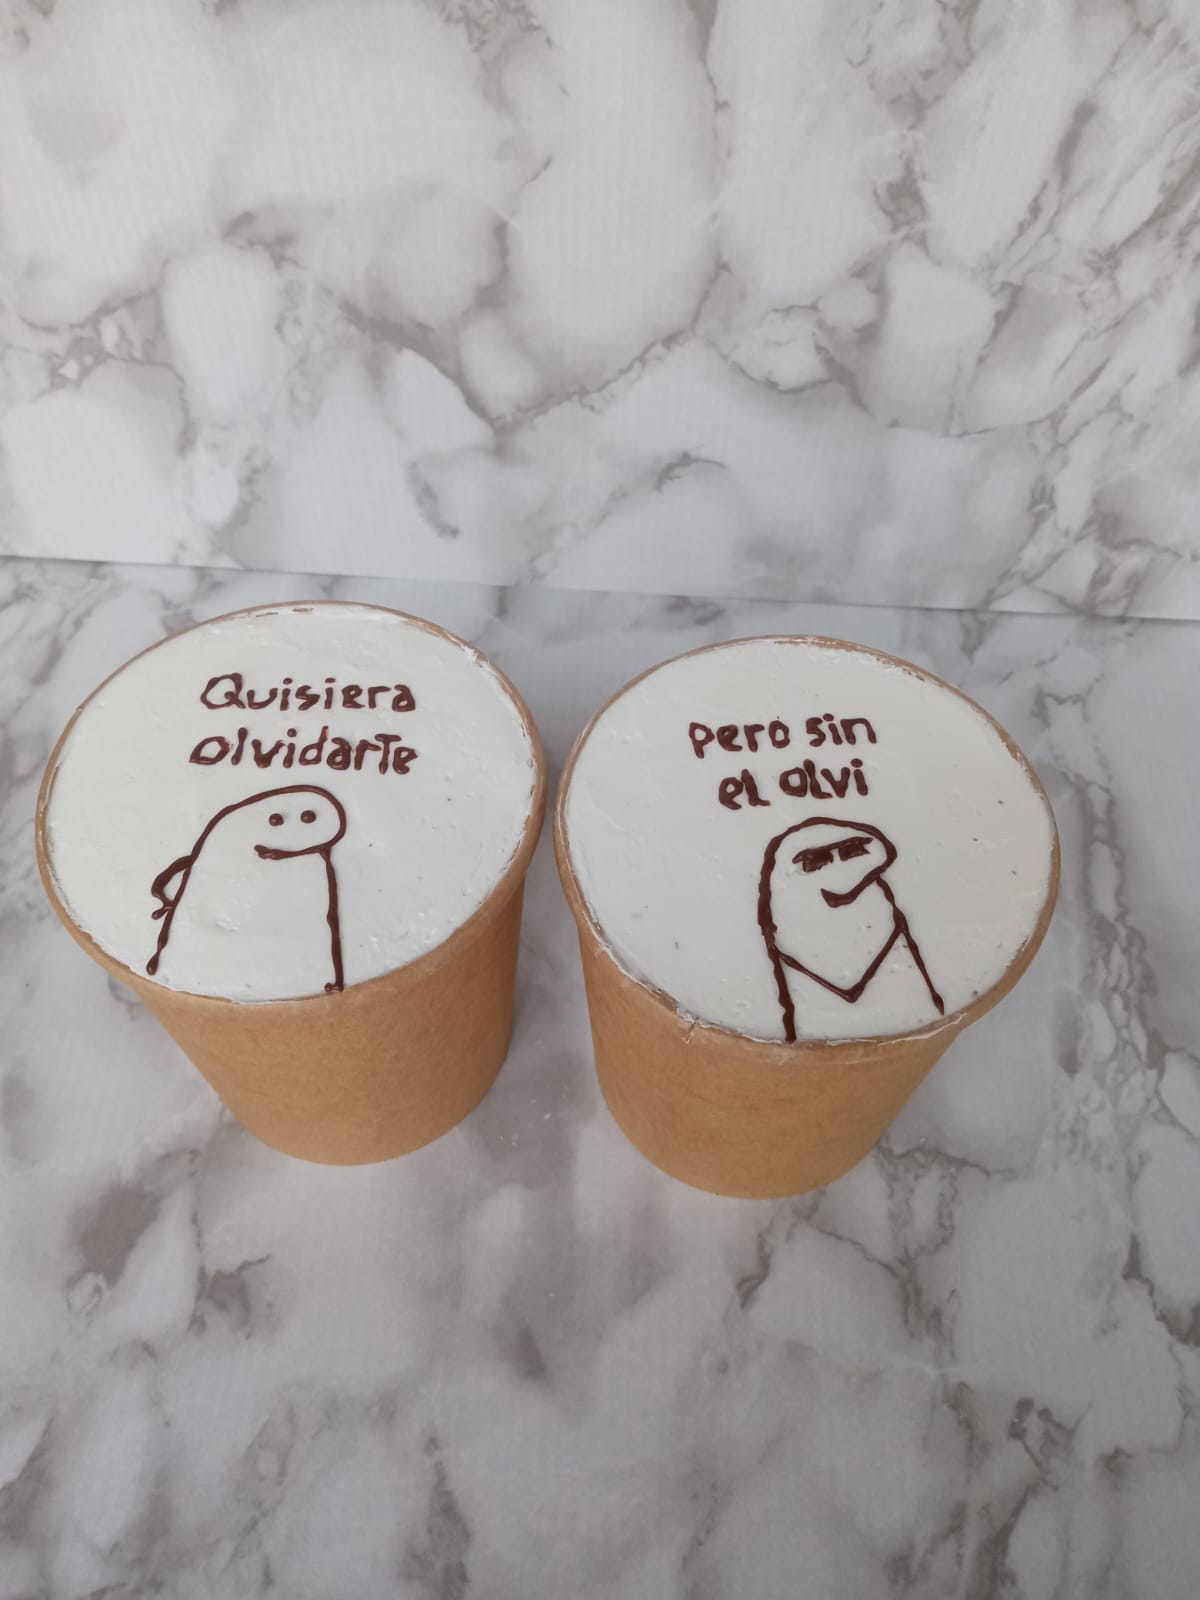 Quisiera
olvidarte
pero sin
el olvi